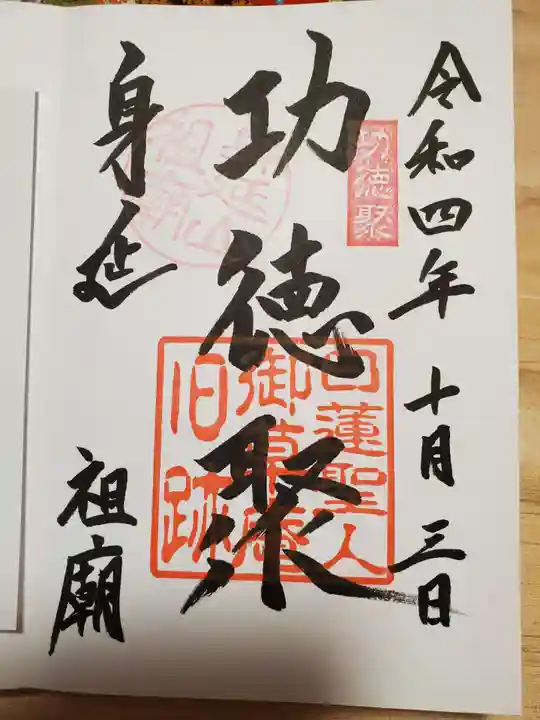 令和四年 十月 三日
功徳聚
功徳聚
日蓮聖人
御草庵
旧跡
身延 祖廟